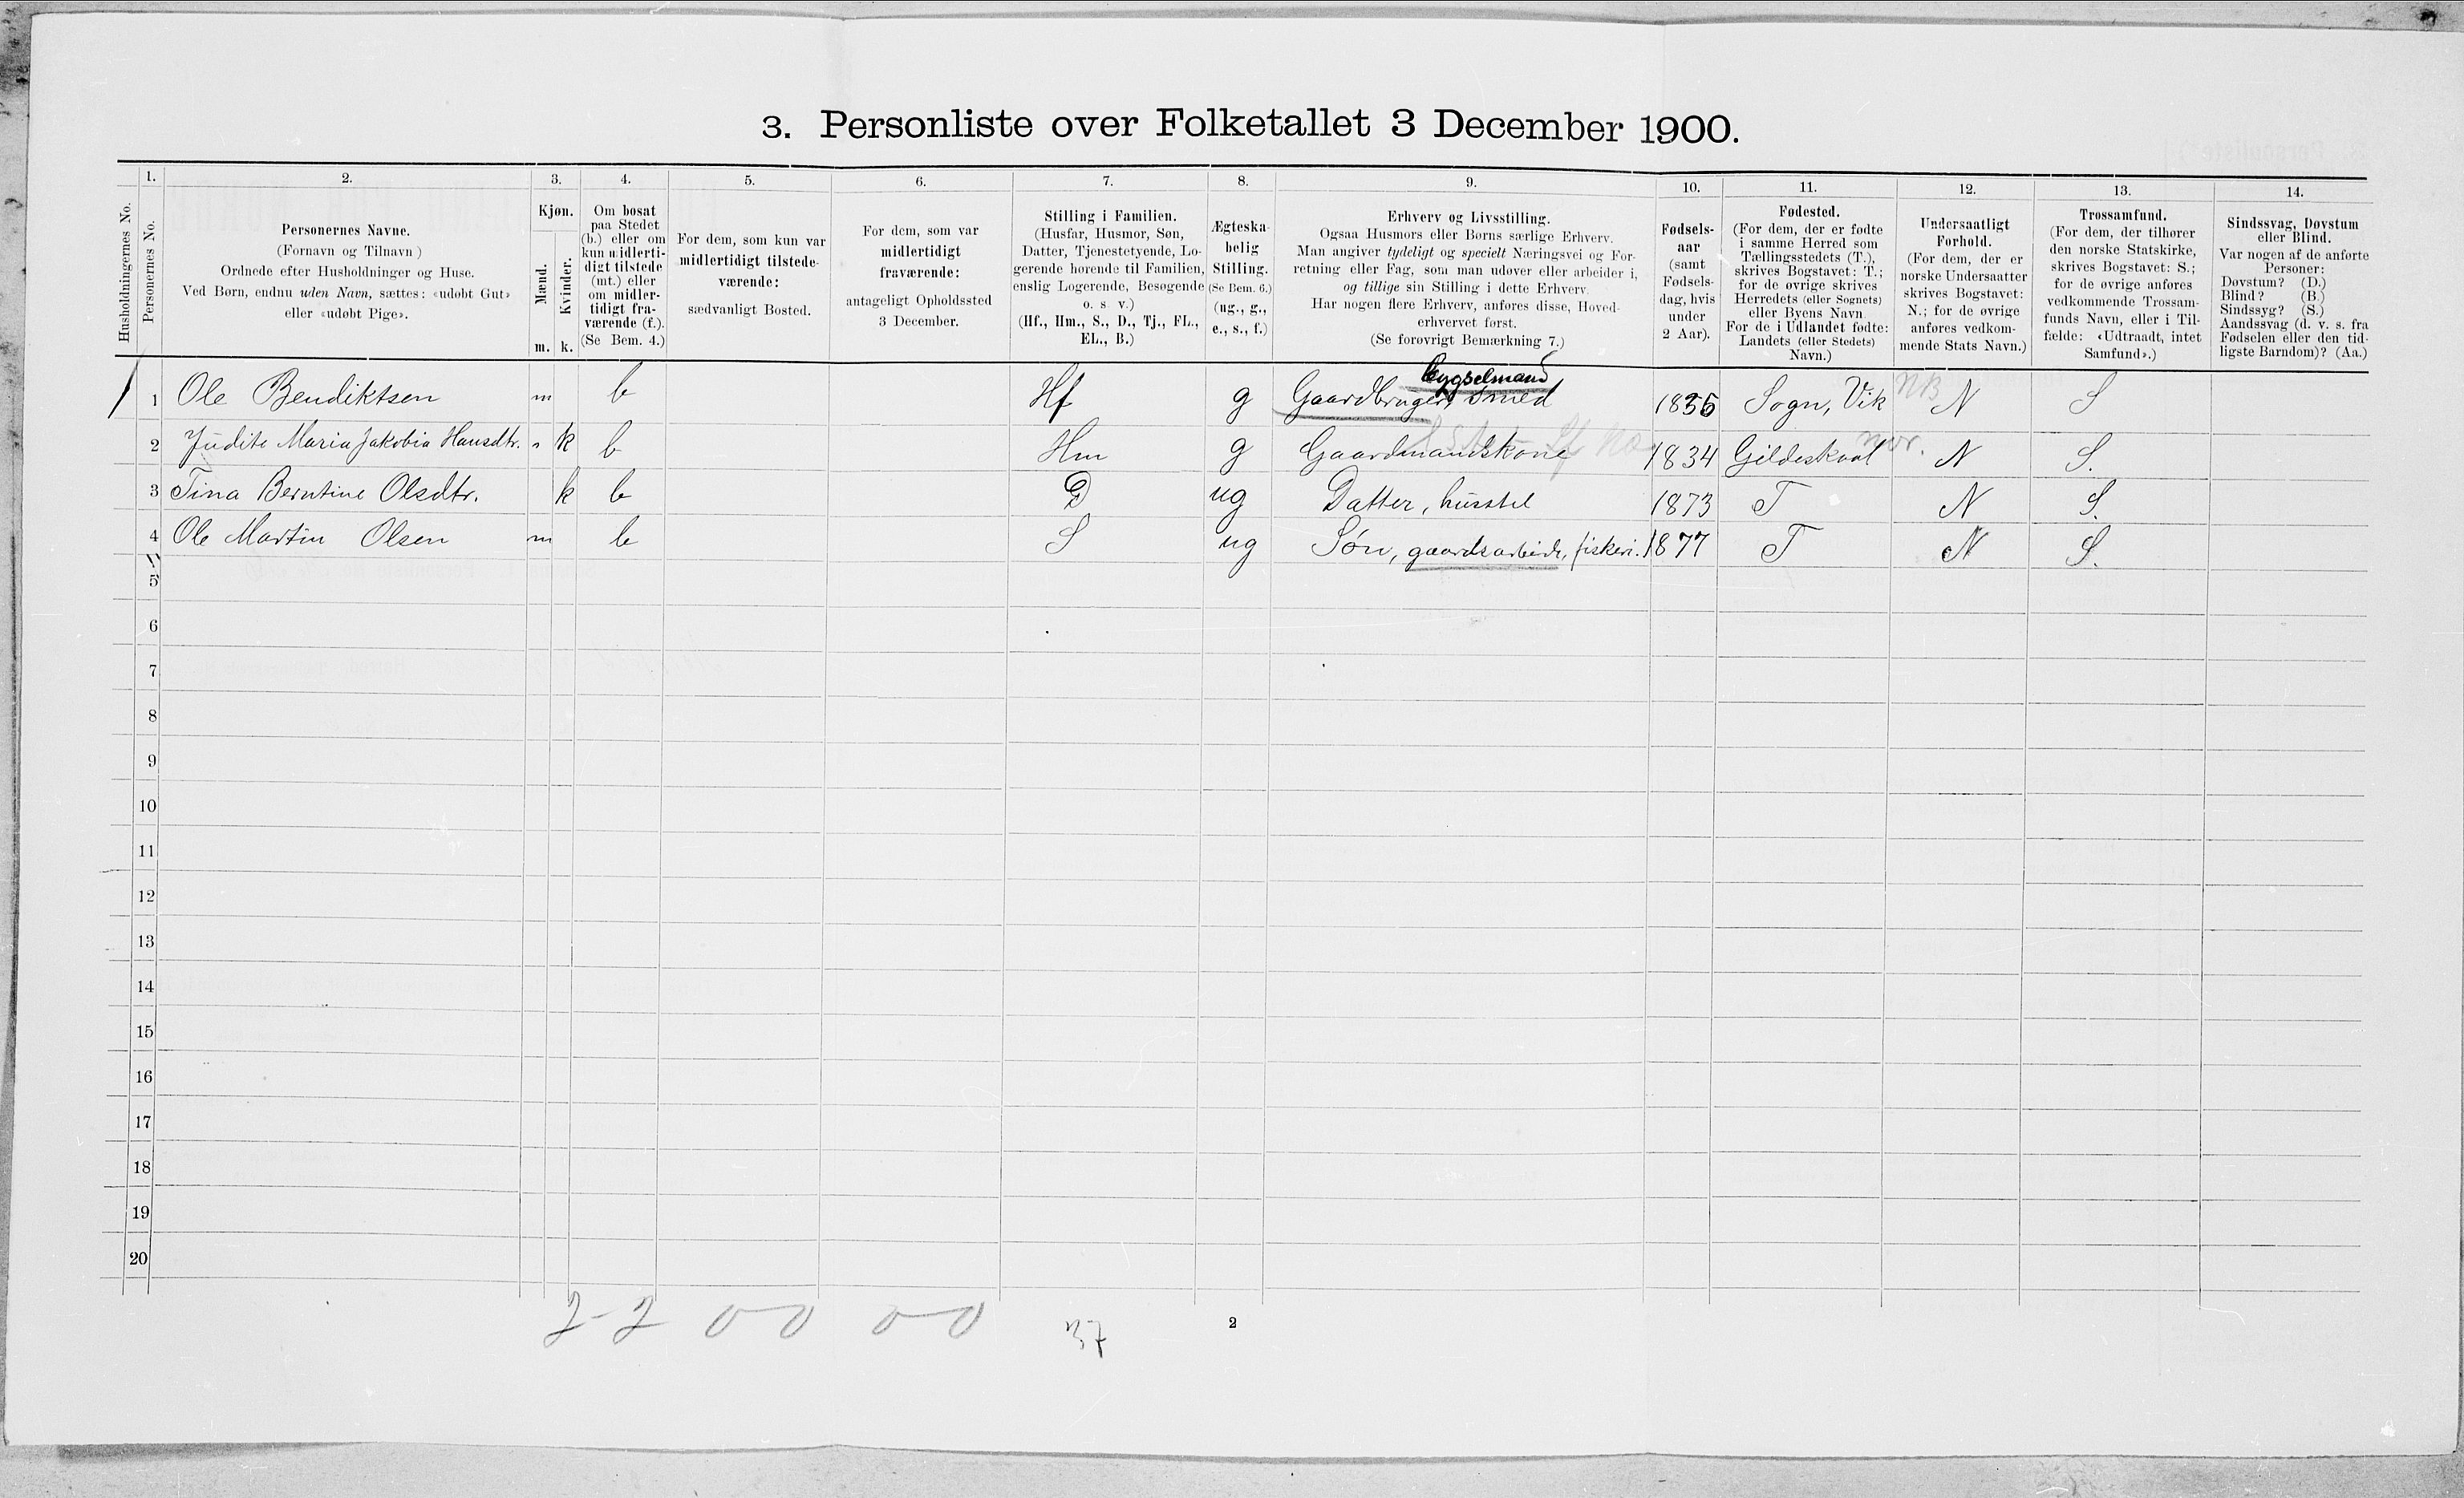 3. Personliste over Folketallet 3 December 1900.
Husholdningernes No.
1.
Personernes No.
2.
Personernes Navne.
(Fornavn og Tilnavn )
Ordnede efter Husholdninger og Huse.
Ved Børn, endnu uden Navn, sættes: «udøbt Gut»
eller «udøbt Pige».
3.
Kjøn.
Mænd.
Kvinder.
m. k.
4.
Om bosat
paa Stedet
(b.) eller om
kun midlerti-
digt tilstede
(mt.) eller
om midler-
tidigt fra-
værende (f.).
(Se Bem. 4.)
5.
For dem, som kun var
midlertidigt tilstede-
værende:
sædvanligt Bosted.
6.
For dem, som var
midlertidigt
fraværende:
antageligt Opholdssted
3 December.
7.
Stilling i Familien.
(Husfar, Husmor, Søn,
Datter, Tjenestetyende, Lo-
gerende hørende til Familien,
enslig Logerende, Besøgende
o. s. v.)
(Hf., Hm., S., D., Tj., FL.,
EL., B.)
8.
Ægteska-
belig
Stilling.
(Se Bem. 6.)
(ug., g.,
e., s., f.)
9.
Erhverv og Livsstilling.
Ogsaa Husmors eller Børns særlige Erhverv.
Man angiver tydeligt og specielt Næringsvei og For-
retning eller Fag, som man udøver eller arbeider i,
og tillige sin Stilling i dette Erhverv.
Har nogen flere Erhverv, anføres disse, Hoved-
erhvervet først.
(Se forøvrigt Bemærkning 7.)
10.
Fødsels-
aar
(samt
Fødsels-
dag, hvis
under
2 Aar).
11.
Fødested.
(For dem, der er fødte
i samme Herred som
Tællingsstedets (T.),
skrives Bogstavet: T.;
for de øvrige skrives
Herredets (eller Sognets)
eller Byens Navn.
For de i Udlandet fødte:
Landets (eller Stedets)
Navn.)
12.
Undersaatligt
Forhold.
(For dem, der er
norske Undersaatter
skrives Bogstavet:
N.; for de øvrige
anføres vedkom-
mende Stats Navn.)
13.
Trossamfund.
(For dem, der tilhører
den norske Statskirke,
skrives Bogstavet: S.;
for de øvrige anføres
vedkommende Trossam-
funds Navn, eller i Til-
fælde: «Udtraadt, intet
Samfund».)
14.
Sindssvag, Døvstum
eller Blind.
Var nogen af de anførte
Personer:
Døvstum? (D.)
Blind? (B.)
Sindssyg? (S.)
Aandssvag (d. v. s. fra
Fødselen eller den tid-
ligste Barndom)? (Aa.)
Bygselmand
1 1 Ole Bendiktsen m b Hf g Gaardbruger, smed 1835 Sogn, Vik NB N S
2 Judite Maria Jakobia Hansdtr. k b Hm g Gaardmandskone 1834 Gildeskaal N S.
3 Tina Berntine Olsdtr. k b D ug Datter, husstel 1873 T N S.
4 Ole Martin Olsen m b S ug Søn, gaardsarbeide, fiskeri. 1877 T N S.
5
6
7
8
9
10
11
12
13
14
15
16
17
18
19
20
2-2 0-0 0-0
2